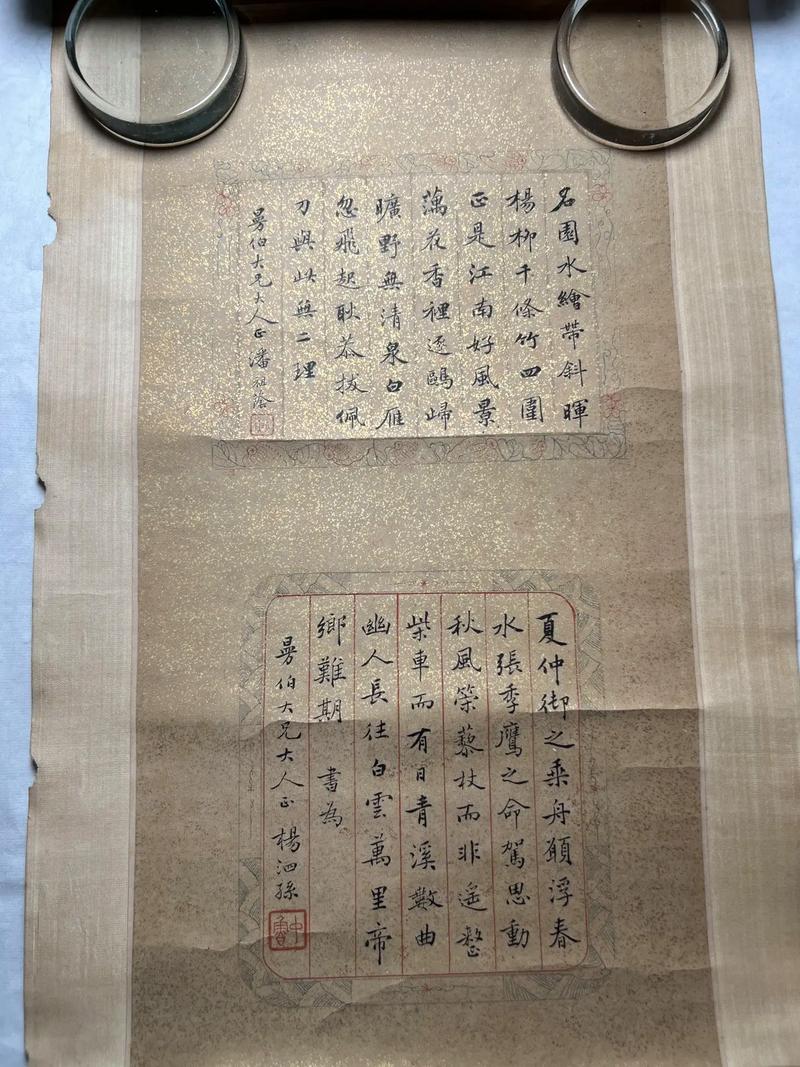 名園水繪帶斜暉
楊柳千條竹四圍
正是江南好風景
藕花香裡逐鷗歸
曠野無清泉白雁
忽飛起耿恭拔佩
刀與此無二理
曼伯大兄大人正 潘祖蔭
夏仲御之乘舟願浮春
水張季鷹之命駕思動
秋風策藜杖而非遙整
柴車而有日青溪數曲
幽人長往白雲萬里帝
鄉難期 書為
曼伯大兄大人正 楊泗孫